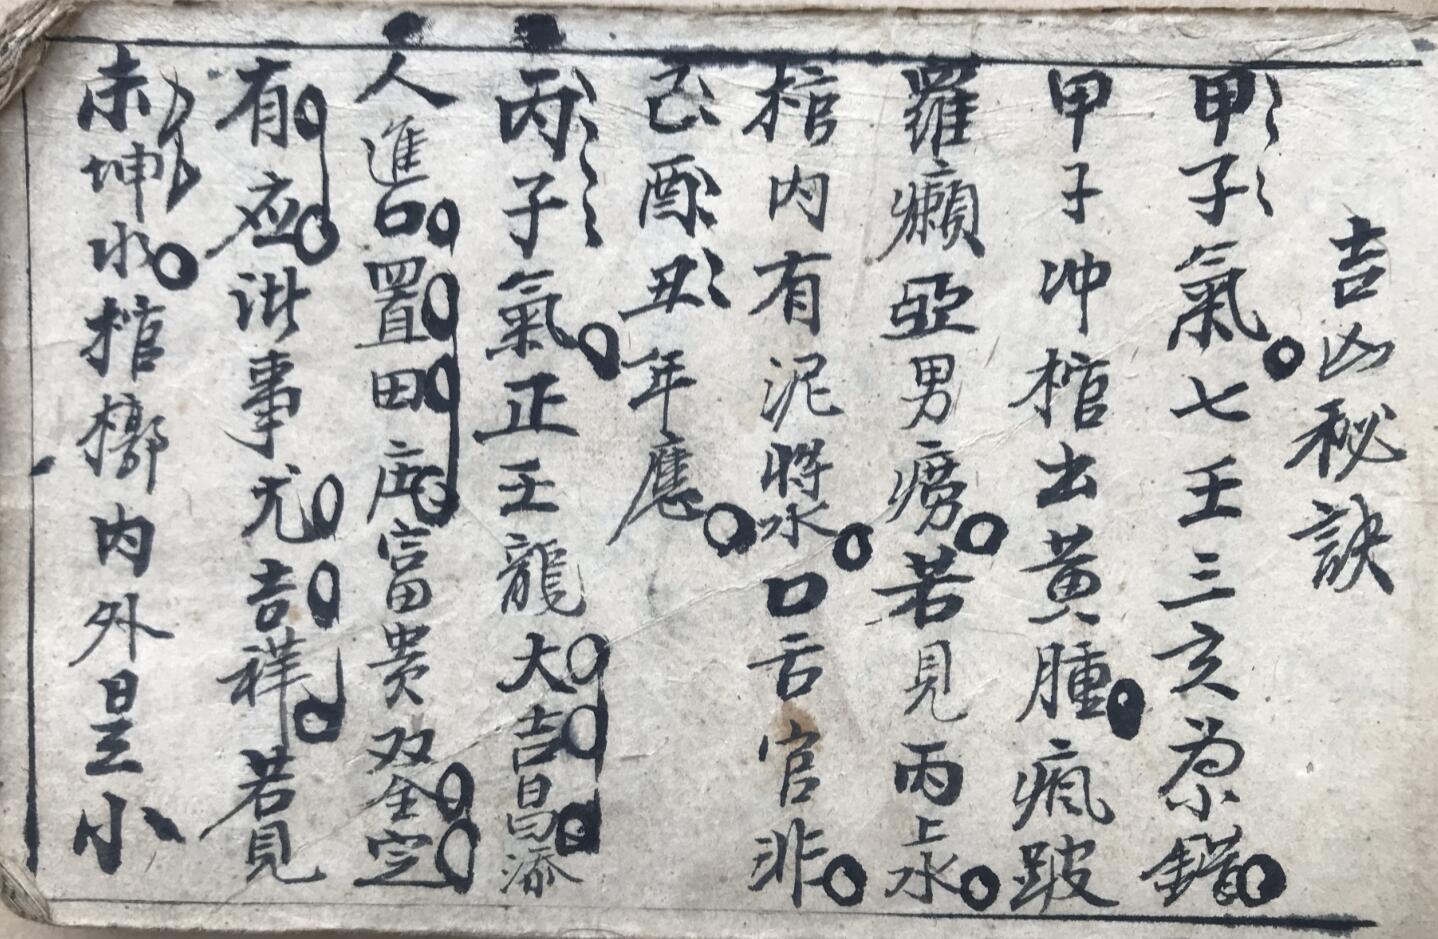 吉凶秘訣
甲子氣七壬三亥為差錯
甲子冲棺出黄腫瘋跛
羅癩亞男癆若見丙上水
棺内有泥將水口舌官非
己酉丑年應
丙子氣正壬龍大吉昌添
人進口置田庄富贵双全定
有应此事尤吉祥若見
未坤水棺槨内外是小